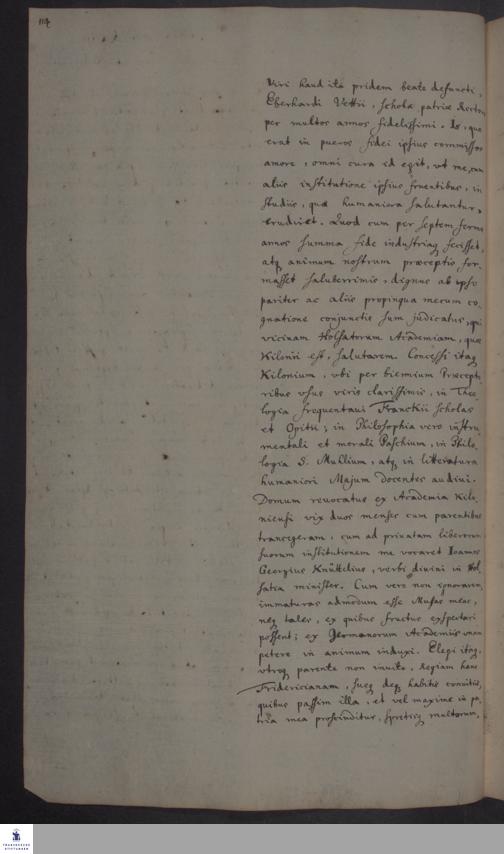 114
Viri haud ita pridem beate defuncti,
Eberhardi Vettri, scholæ patriæ Rectoris
per multos annos fidelissimi. Is, quo
erat in pueros fidei ipsius commissos
amore, omni cura id egit, ut me, cum
aliis institutione ipsius fruentibus, in
studiis, quæ humaniora salutantur,
erudiret. Quod cum per septem ferme
annos summa fide industriaq; fecisset,
atq; animum nostrum præceptis for-
masset saluberrimis, dignus ab ipso
pariter ac aliis propinqua mecum co-
gnatione conjunctis sum judicatus, qui
vicinam Holsatorum Academiam, quæ
Kilonii est, salutarem. Concessi itaq;
Kilonium, ubi per biennium Præcepto-
ribus usus viris clarissimis, in Theo-
logia frequentaui Franckii scholas
et Opitii; in Philosophia vero instru-
mentali et morali Paschium, in Philo-
logia S. Muhlium, atq; in litteratura
humaniori Majum docentes audiui.
Domum reuocatus ex Academia Kilo-
niensi vix duos menses cum parentibus
transegeram, cum ad priuatam liberorum
suorum institutionem me vocaret Ioannes
Georgius Knüttelius, verbi diuini in Hol-
satia minister. Cum vero non ignorarem,
immaturas admodum esse Musas meas,
neq; tales, ex quibus fructus exspectari
possent; ex Germanorum Academiis unam
petere in animum induxi. Elegi itaq;,
utroq; parente non inuito, Regiam hanc
Fridericianam, susq; deq; habitis conuitiis,
quibus passim illa, et vel maxime in pa-
tria mea proscinditur, spretisq; multorum,
FRANCKESCHE
STIFTUNGEN